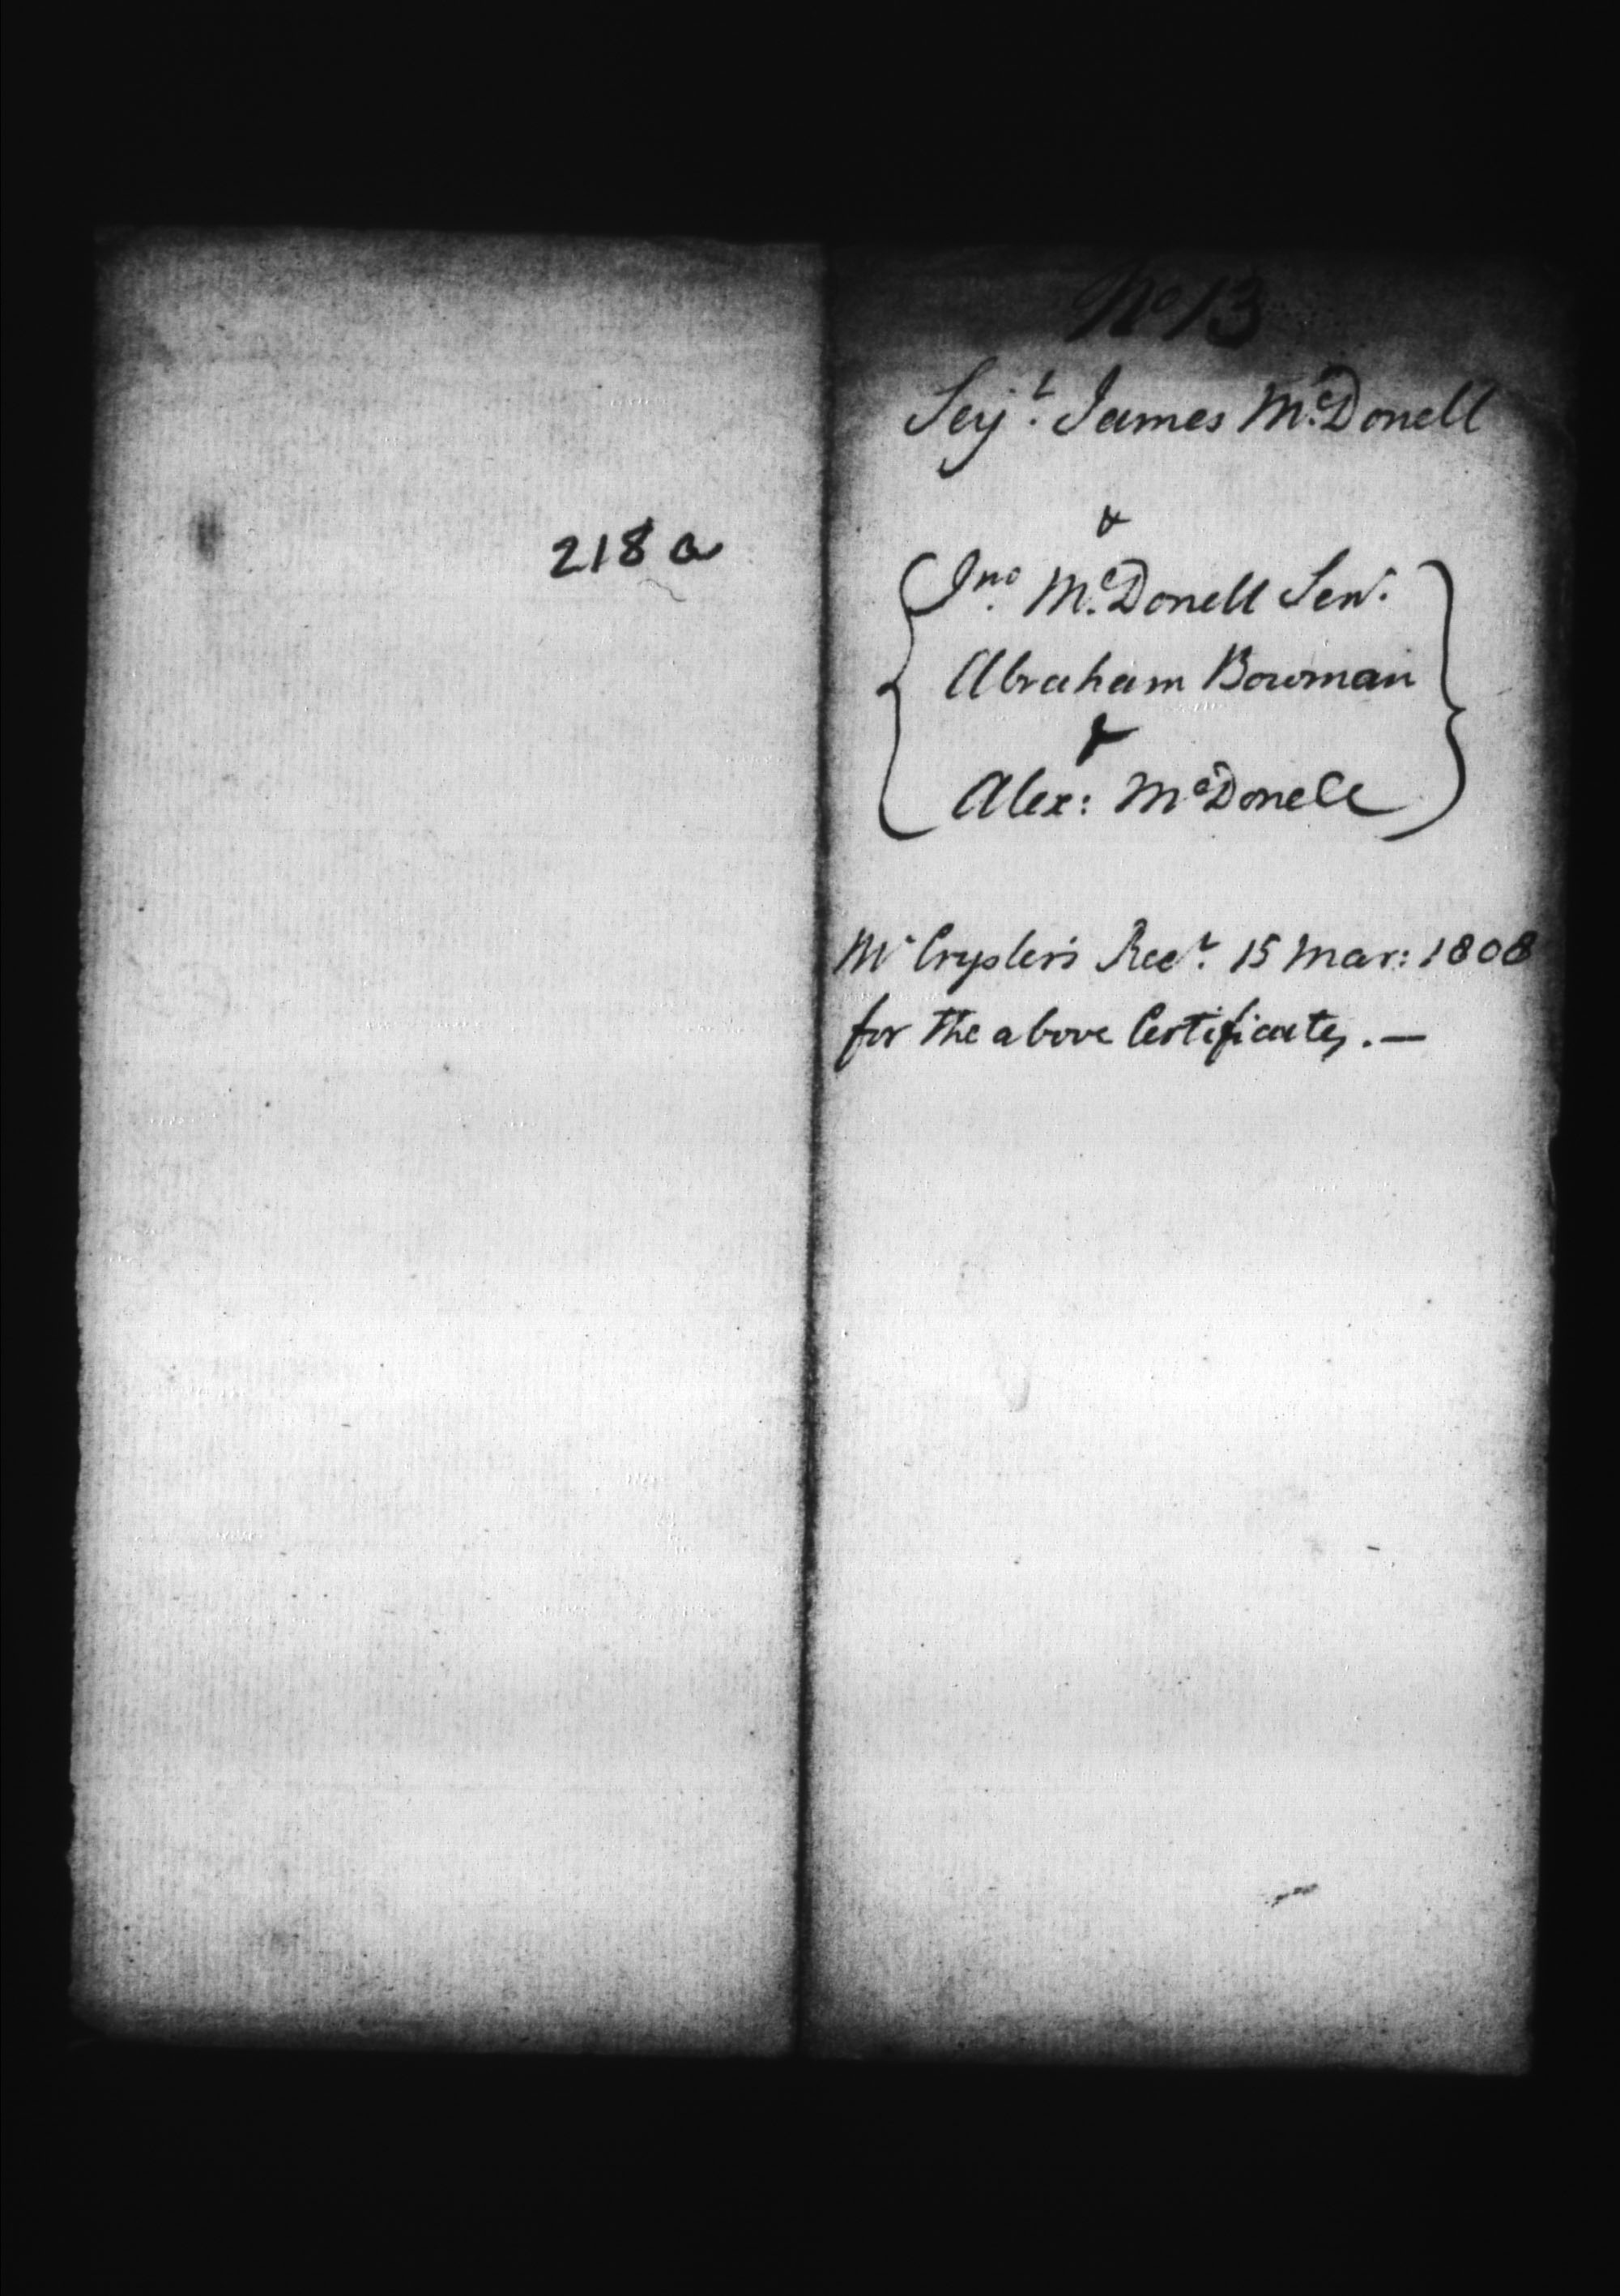 218 a
No 13
Serjt. James McDonell
&
Jno. McDonell Senr.
Abraham Bowman
&
Alex: McDonell
Mr Crysler's Rect. 15 Mar: 1808
for the above Certificates. —